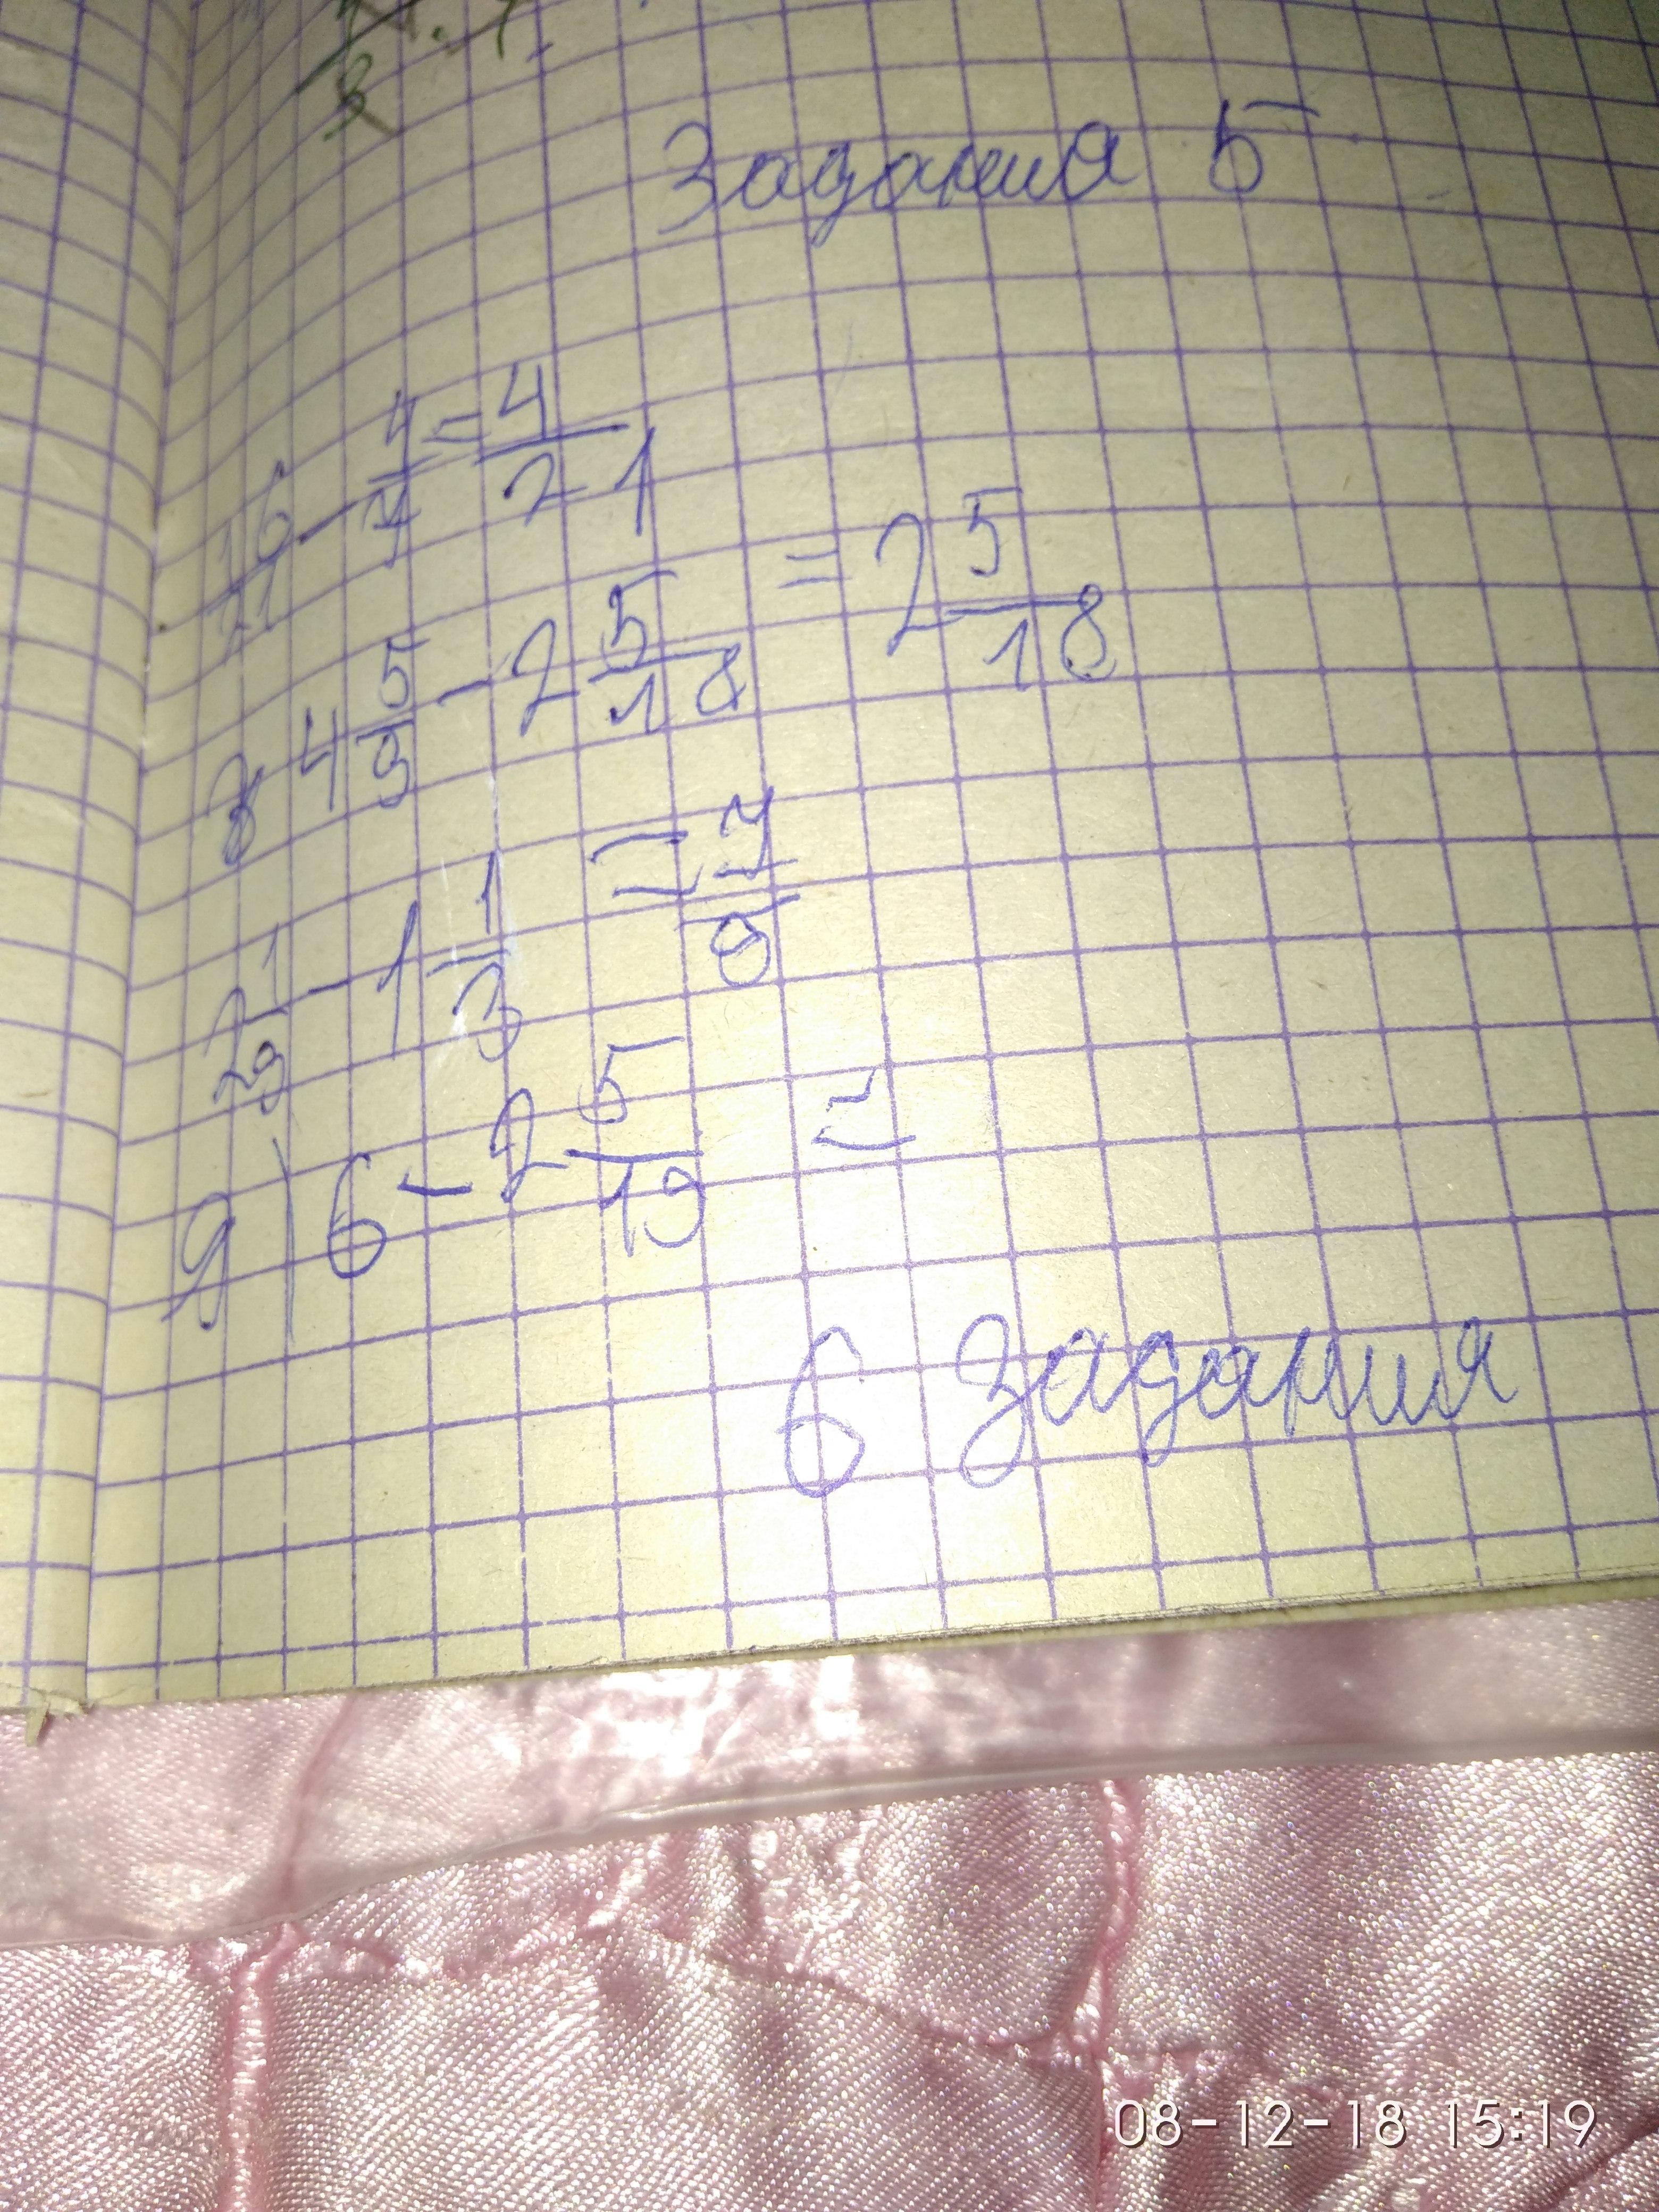 Задания 5
16/21 - 4/7 = 4/21
4 5/9 - 2 5/18 = 2 5/18
2 1/9 - 1 1/3 = 7/9
6 - 2 5/19 =
6 Задания
08-12-18 15:19